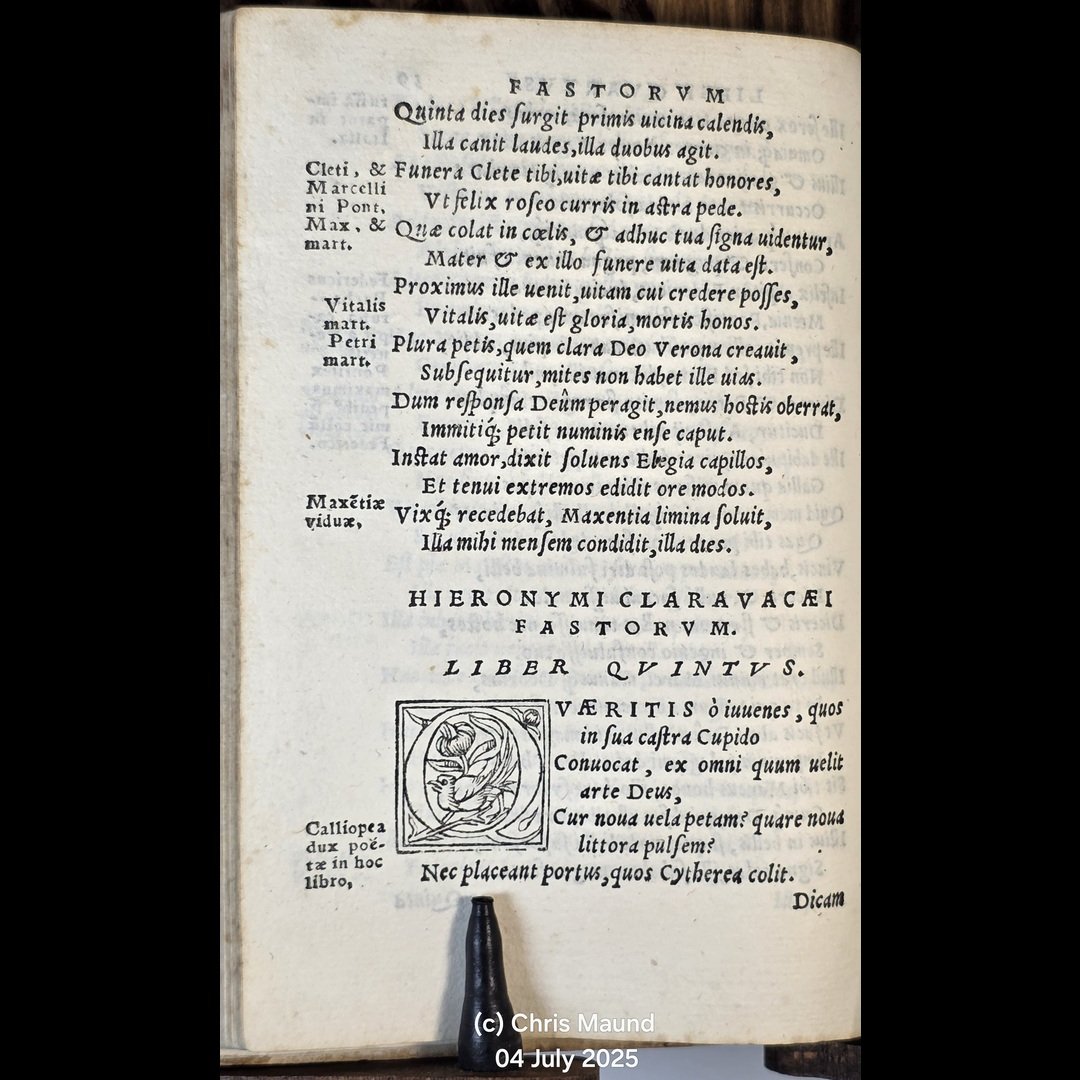 FASTORVM
Quinta dies ſurgit primis uicina calendis,
Illa canit laudes, illa duobus agit.
Cleti, & Marcellini Pont. Max, & mart.
Funera Clete tibi, uitæ tibi cantat honores,
Vt felix roſeo curris in aſtra pede.
Quæ colat in cœlis, & adhuc tua ſigna uidentur,
Mater & ex illo funere uita data eſt.
Proximus ille uenit, uitam cui credere poſſes,
Vitalis mart.
Vitalis, uitæ eſt gloria, mortis honos.
Petri mart.
Plura petis, quem clara Deo Verona creauit,
Subſequitur, mites non habet ille uias.
Dum reſponſa Deûm peragit, nemus hoſtis oberrat,
Immitiq́; petit numinis enſe caput.
Inſtat amor, dixit ſoluens Elegia capillos,
Et tenui extremos edidit ore modos.
Maxẽtiæ viduæ,
Vixq́; recedebat, Maxentia limina ſoluit,
Illa mihi menſem condidit, illa dies.
HIERONYMI CLARAVACÆI
FASTORVM.
LIBER QVINTVS.
QVÆRITIS ò iuuenes, quos
in ſua caſtra Cupido
Conuocat, ex omni quum uelit
arte Deus,
Cur noua uela petam? quare noua
littora pulſem?
Calliopea
dux poé-
tæ in hoc
libro,
Nec placeant portus, quos Cytherea colit.
Dicam
(c) Chris Maund
04 July 2025